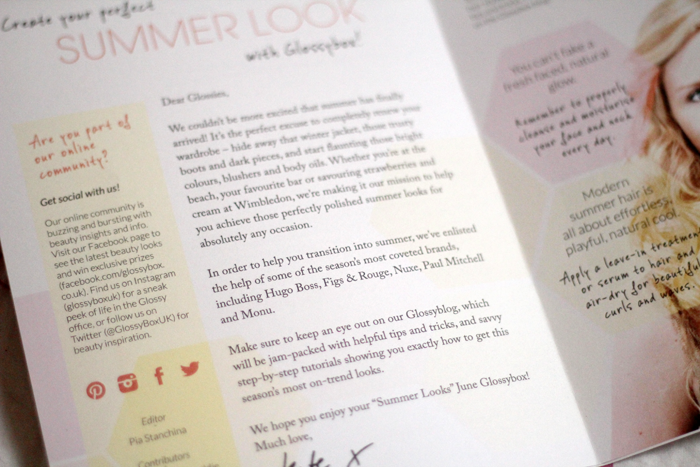 Create your perfect
SUMMER LOOK
with Glossybox!
Are you part of
our online
community?
Get social with us!
Our online community is
buzzing and bursting with
beauty insights and info.
Visit our Facebook page to
see the latest beauty looks
and win exclusive prizes
(facebook.com/glossybox.
co.uk). Find us on Instagram
(glossyboxuk) for a sneak
peek of life in the Glossy
office, or follow us on
Twitter (@GlossyBoxUK) for
beauty inspiration.
Editor
Pia Stanchina
Contributors
Dear Glossies,
We couldn't be more excited that summer has finally
arrived! It's the perfect excuse to completely renew your
wardrobe – hide away that winter jacket, those worry
boots and dark pieces, and start flaunting those bright
colours, blushers and body oils. Whether you're at the
beach, your favourite bar or savouring strawberries and
cream at Wimbledon, we're making it our mission to help
you achieve those perfectly polished summer looks for
absolutely any occasion.
In order to help you transition into summer, we've enlisted
the help of some of the season's most coveted brands,
including Hugo Boss, Figs & Rouge, Nuxe, Paul Mitchell
and Monu.
Make sure to keep an eye out on our Glossyblog, which
will be jam-packed with helpful tips and tricks, and savvy
step-by-step tutorials showing you exactly how to get this
season's most on-trend looks.
We hope you enjoy your "Summer Looks" June Glossybox!
Much love,
x
You can't fake a
fresh faced, natural
glow.
Remember to properly
cleanse and moisturise
your face and neck
every day.
Modern
summer hair is
all about effortless,
playful, natural cool.
Apply a leave-in treatment
or serum to hair and
air-dry for beautiful
curls and waves.